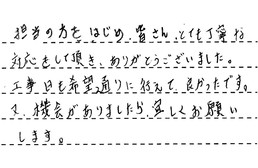 担当の方をはじめ、皆さん、とても丁寧な
対応をして頂き、ありがとうございました。
工事日も希望通りに行えて良かったです。
又、機会がありましたら、宜しくお願い
します。